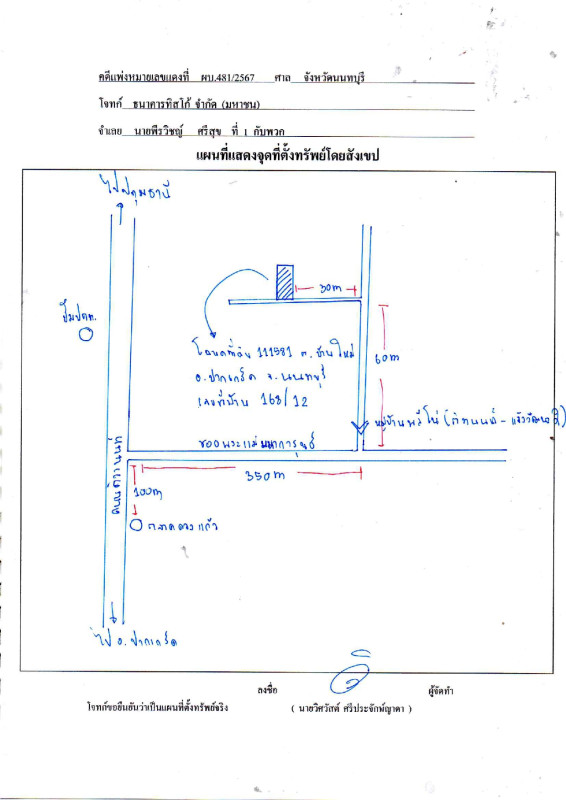 คดีแพ่งหมายเลขแดงที่ ผบ.481/2567 ศาล จังหวัดนนทบุรี
โจทก์ ธนาคารทิสโก้ จำกัด (มหาชน)
จำเลย นายพีรวิชญ์ ศรีสุข ที่ 1 กับพวก
แผนที่แสดงจุดที่ตั้งทรัพย์โดยสังเขป
ไปปทุมธานี
30m
ปั๊มปตท.
โฉนดที่ดิน 111581 ต. บ้านใหม่
อ.ปากเกร็ด จ.นนทบุรี
เลขที่บ้าน 168/12
60m
หมู่บ้าน (ติวานนท์ - แจ้งวัฒนะ)
ซอยพระแม่มหาการุณย์
350m
ถนนติวานนท์
100m
ตลาด
ไป อ.ปากเกร็ด
ลงชื่อ ผู้จัดทำ
โจทก์ขอยืนยันว่าเป็นแผนที่ตั้งทรัพย์จริง ( นายวิศวัสต์ ศรีประจักษ์ญาดา )